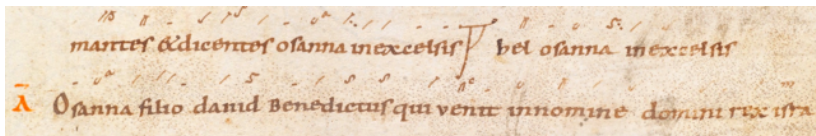 mantes & dicentes osanna inexcelsis vel osanna inexcelsis
A Osanna filio david Benedictus qui venit innomine domini rex isra